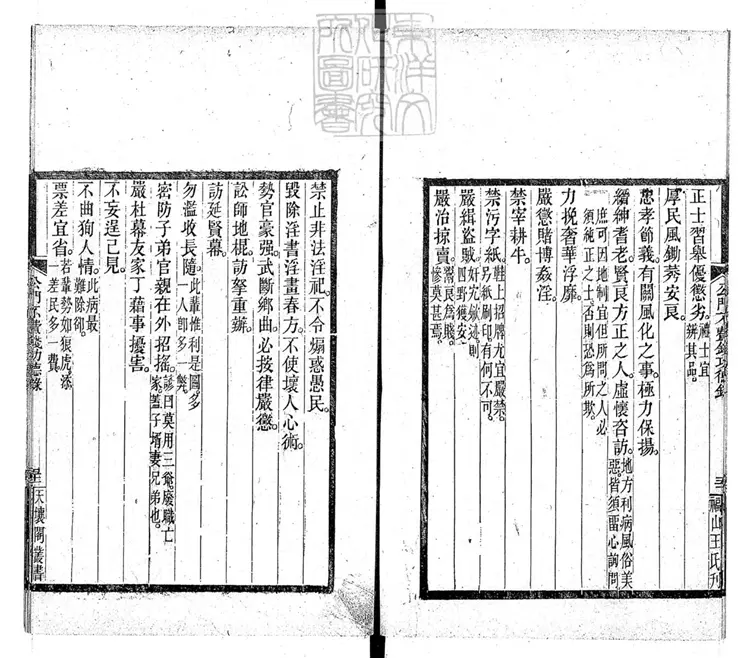 東洋文
化研究
所圖書
正士習舉優懲劣。禮士宜辨其品。
厚民風鋤莠安良。
忠孝節義有關風化之事。極力保揚。
縉紳耆老賢良方正之人。虛懷咨訪。地方利病風俗美惡。皆須留心詢問
庶可因地制宜但所問之人必須純正之士否則恐爲所欺。
力挽奢華浮靡。
嚴懲賭博姦淫。
禁宰耕牛。
禁污字紙。鞋上招牌尤宜嚴禁。另紙刷印有何不可。
嚴緝盜賊。奸宄斂迹則四野獲安
嚴治掠賣。鬻良爲賤。慘莫甚焉。
公門不費錢功德錄
福山王氏刊
禁止非法淫祀。不令煽惑愚民。
毀除淫書淫畫春方。不使壞人心術。
勢官豪强。武斷鄉曲。必按律嚴懲。
訟師地棍。訪拏重辦。
訪延賢幕。
勿濫收長隨。此輩惟利是圖。多一人卽多一獘。
密防子弟官親在外招搖。諺曰莫用三爺。廢職亡家。蓋子壻妻兄弟也。
嚴杜幕友家丁藉事擾害。
不妄逞己見。
不曲狥人情。此病最難除卻。
票差宜省。若輩勢如狼虎。添一差民多一費。
公門不費錢功德錄
天壤閣叢書